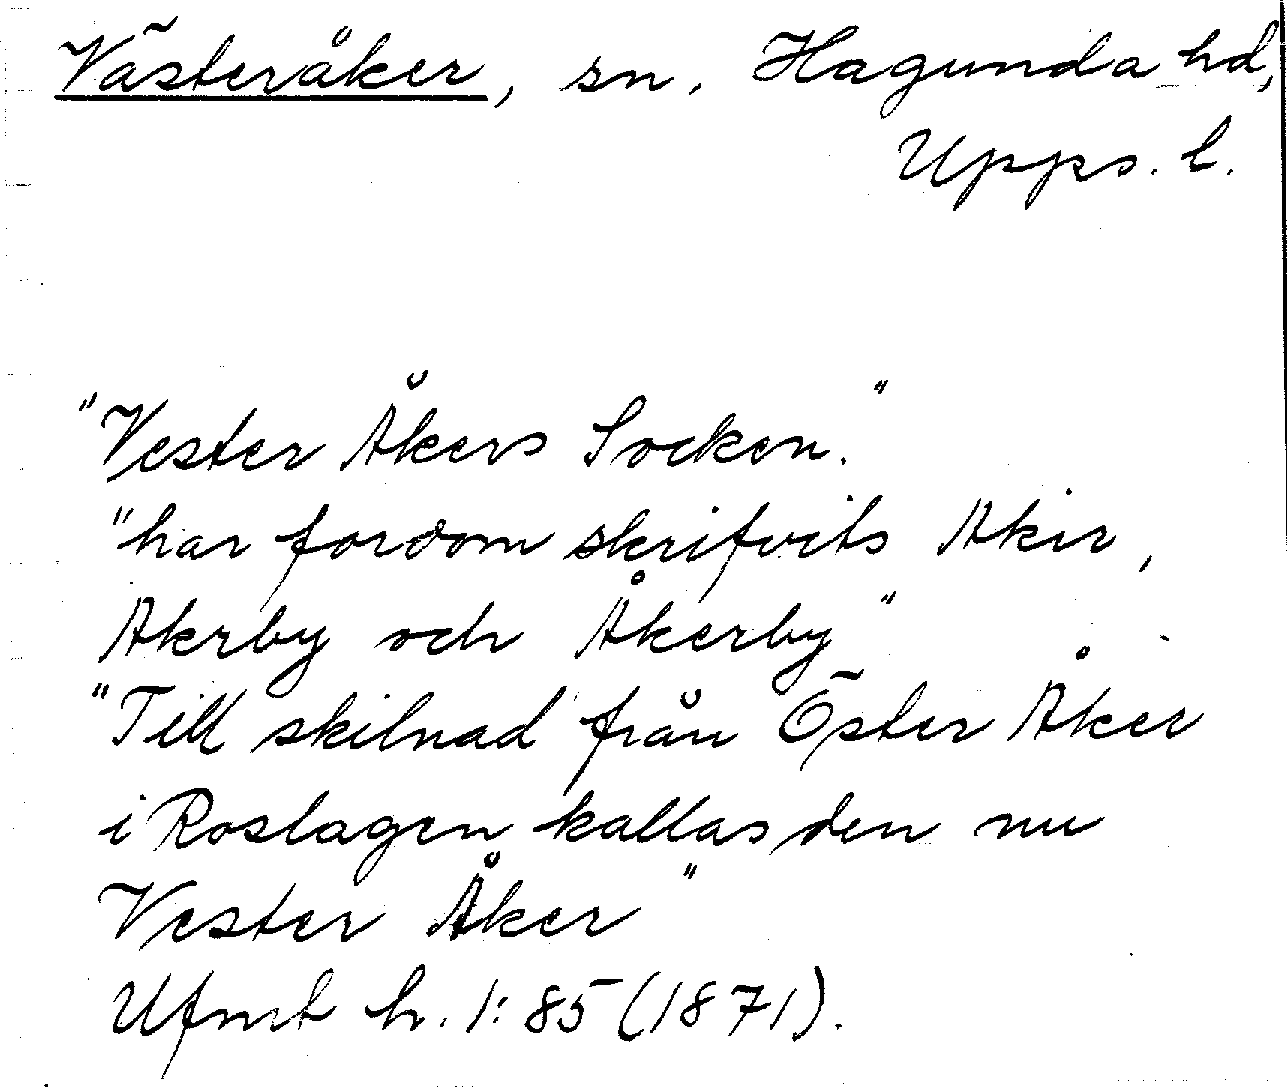 Västeråker, sn, Hagunda hd,
Upps. l.
"Vester Åkers Socken."
"har fordom skrifvits Akir,
Akrby och Åkerby"
"Till skilnad från Öster Åker
i Roslagen kallas den nu
Vester Åker"
Ufmt h. 1:85 (1871).